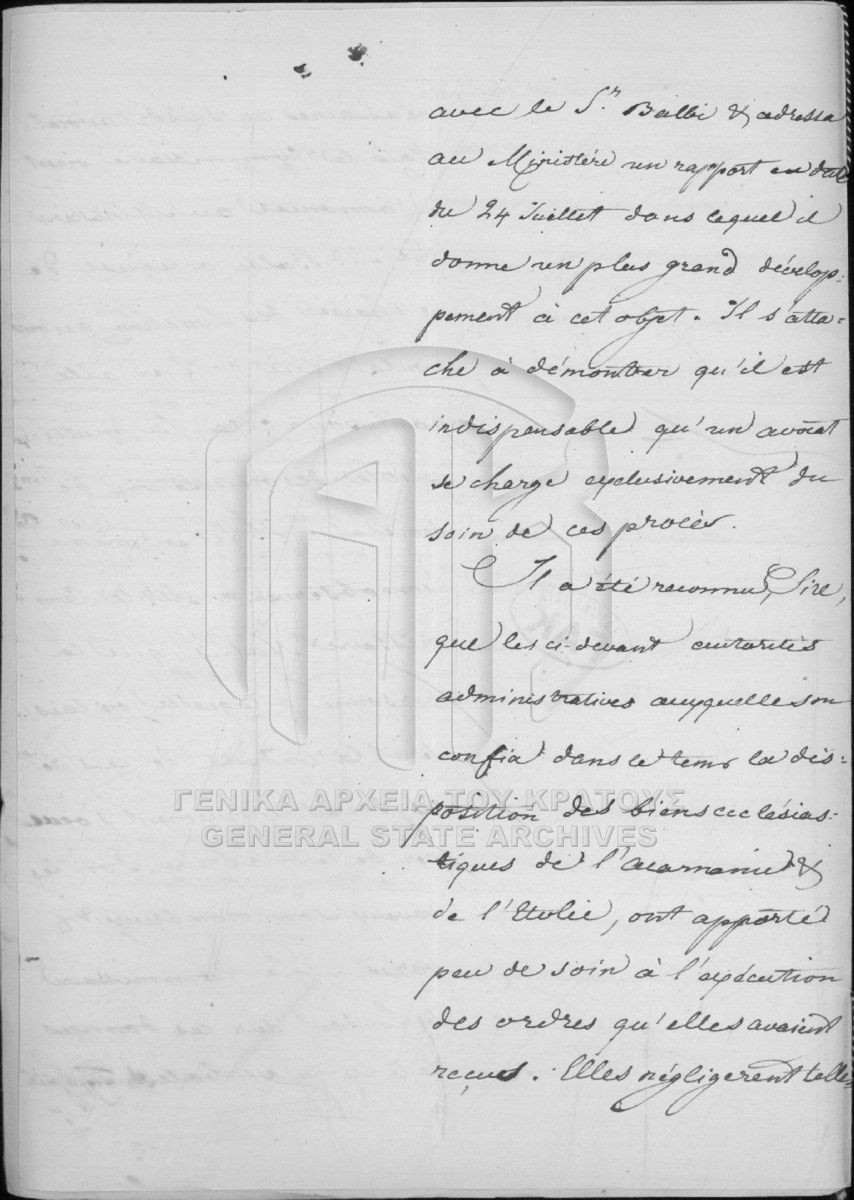 avec le S.r Balbi & adressa
au Ministère un rapport en date
du 24 Juillet dans lequel il
donne un plus grand dévelop=
pement à cet objet. Il s'atta=
che à démontrer qu'il est
indispensable qu'un avocat
se charge exclusivement du
soin de ces procès.
Il a été reconnu, Sire,
que les ci-devant autorités
administratives auxquelles on
confia dans le tems la dis=
position des biens ecclésias=
tiques de l'Acarnanie &
de l'Etolie, ont apporté
peu de soin à l'exécution
des ordres qu'elles avaient
reçues. Elles négligerent telle=
ΓΕΝΙΚΑ ΑΡΧΕΙΑ ΤΟΥ ΚΡΑΤΟΥΣ
GENERAL STATE ARCHIVES